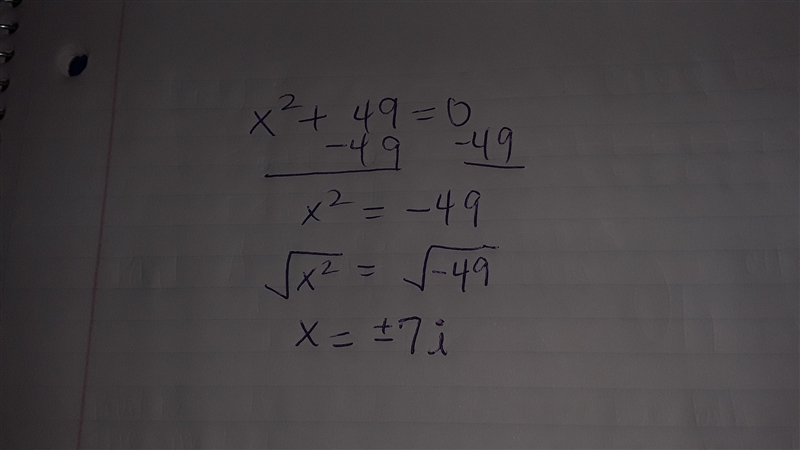 x² + 49 = 0
-49 -49
x² = -49
√x² = √-49
x = ±7i